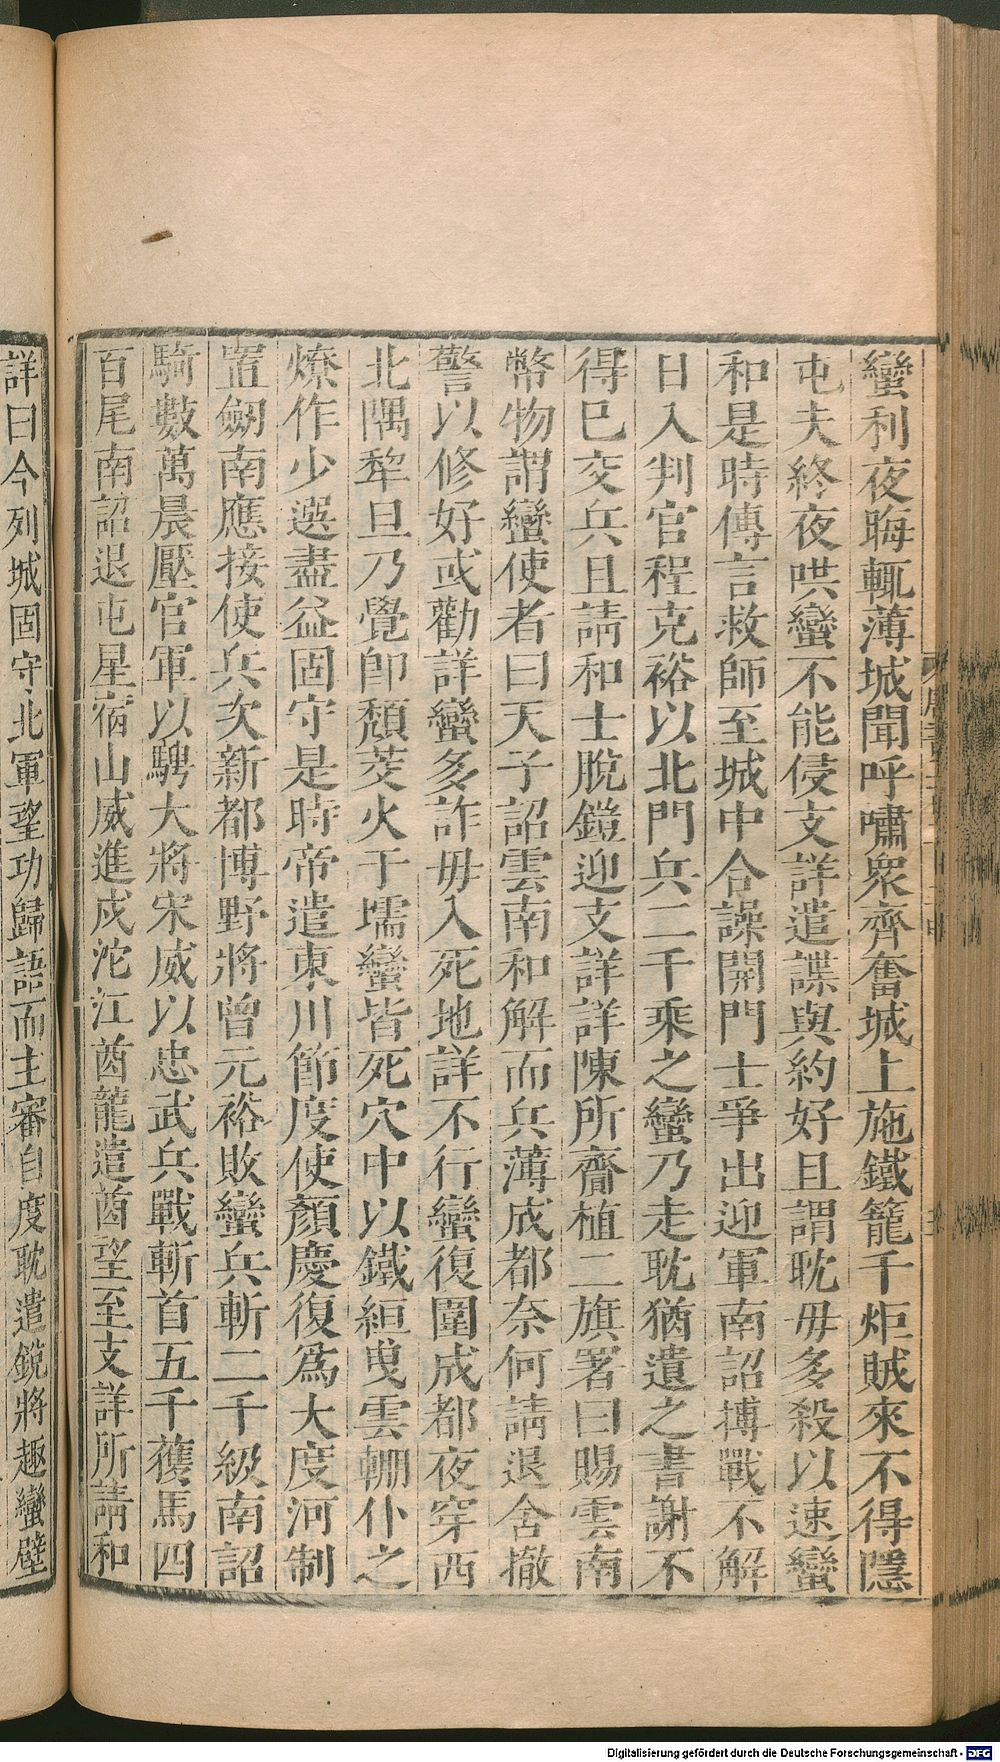 蠻利夜晦輒薄城聞呼嘯衆齊奮城上施鐵籠千炬賊來不得隱
屯夫終夜哄蠻不能侵支詳遣諜與約好且謂耽毋多殺以速蠻
和是時傳言救師至城中合譟開門士爭出迎軍南詔搏戰不解
日入判官程克裕以北門兵二千乘之蠻乃走耽猶遺之書謝不
得巳交兵且請和士脫鎧迎支詳詳陳所齎植二旗署曰賜雲南
幣物謂蠻使者曰天子詔雲南和解而兵薄成都奈何請退舍撤
警以修好或勸詳蠻多詐毋入死地詳不行蠻復圍成都夜穿西
北隅犂旦乃覺卽頹茭火于壖蠻皆死穴中以鐵絙曳雲輣仆之
燎作少選盡益固守是時帝遣東川節度使顏慶復爲大度河制
置劒南應接使兵次新都博野將曾元裕敗蠻兵斬二千級南詔
騎數萬晨壓官軍以騁大將宋威以忠武兵戰斬首五千獲馬四
百尾南詔退屯星宿山威進戍沱江酋龍遣酋望至支詳所請和
詳曰今列城固守北軍望功歸語而主審自度耽遣銳將趣蠻壁
Digitalisierung gefördert durch die Deutsche Forschungsgemeinschaft - DFG